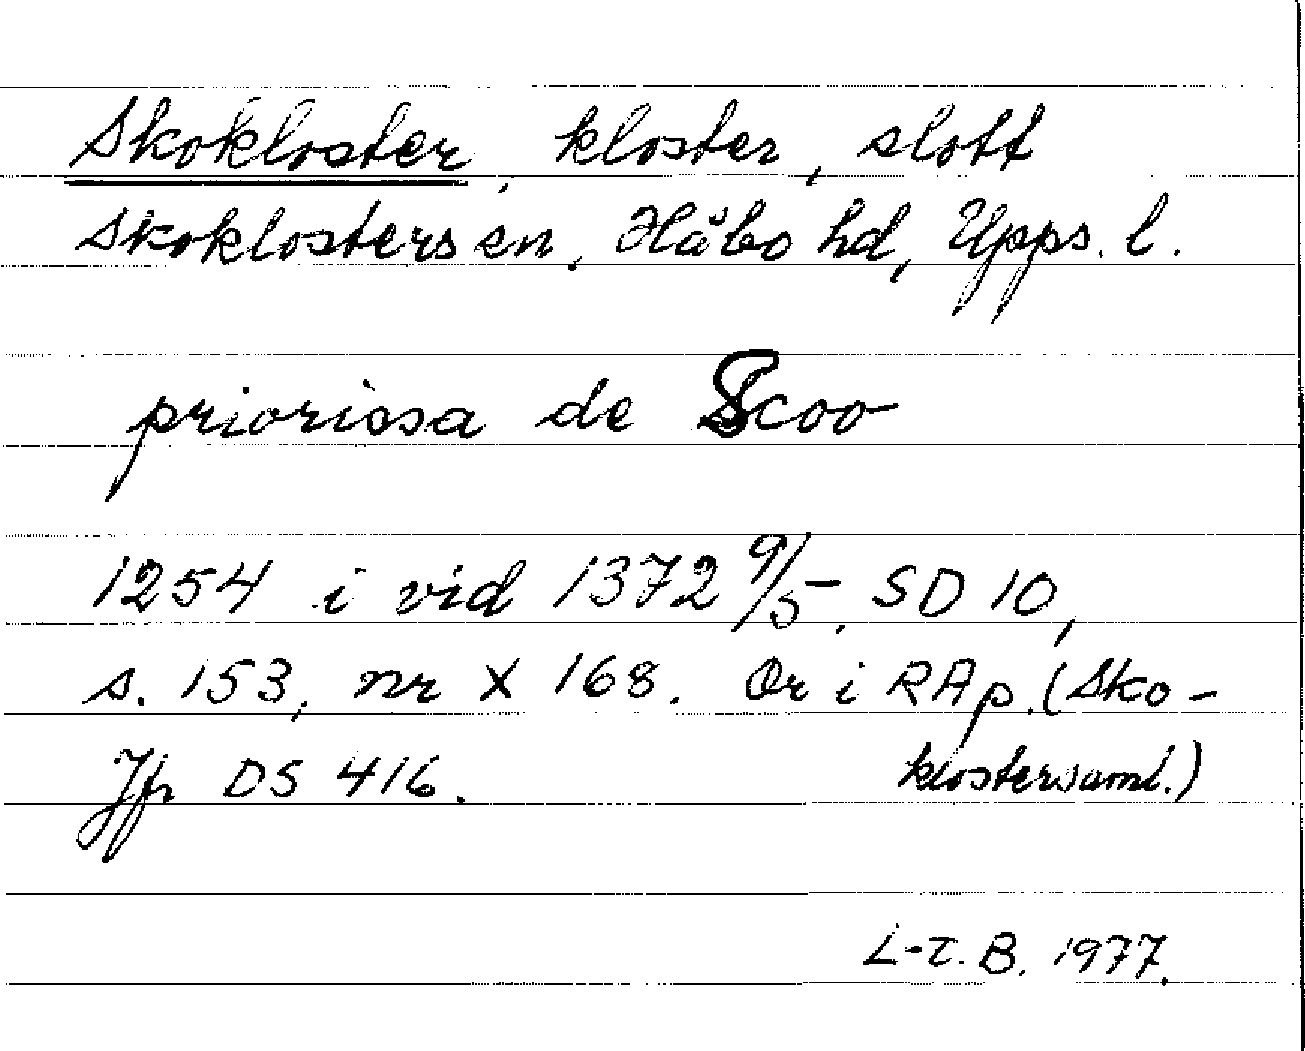 Skokloster, kloster, slott
Skoklosters sn, Håbo hd, Upps. l.
priorissa de Scoo
1254 i vid 1372 9/5. SD 10,
s. 153, nr X 168. Or i RAp. (Sko-
klostersaml.)
Jfr DS 416.
L-E. B. 1977.